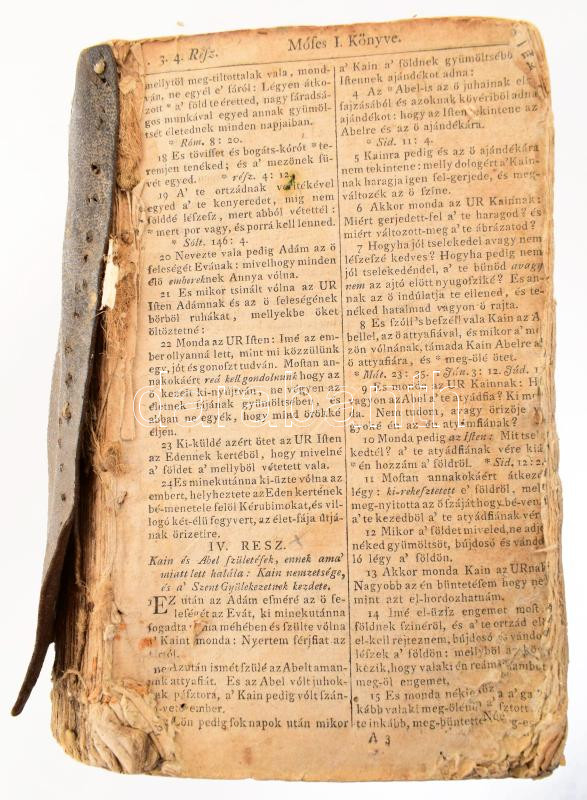 3. 4. Rész.
Móſes I. Könyve.
mellytöl meg-tiltottalak vala, mond-
ván, ne egyél e' fáról: Légyen átko-
zott * a' föld te éretted, nagy fáradsá-
gos munkával egyed annak gyümöl-
tsét életednek minden napjaiban.
* Róm. 8: 20.
18 Es tövisset és bogáts-kórót * te-
remjen tenéked; és a' mezönek fü-
vét egyed. * rész. 4: 12.
19 A' te ortzádnak verítékével
egyed a' te kenyeredet, mig nem
földdé léſzeſz, mert abból vétettél:
* mert por vagy, és porrá kell lenned.
* Sólt. 146: 4.
20 Nevezte vala pedig Adám az ö
feleségét Evának: mivelhogy minden
élö embereknek Annya vólna.
21 Es mikor tsinált vólna az UR
Iſten Adámnak és az ö feleségének
börböl ruhákat, mellyekbe öket
öltöztetné:
22 Monda az UR Iſten: Imé az em-
ber ollyanná lett, mint mi közzülünk
egy, jót és gonoſzt tudván. Moſtan an-
nakokáért reá kell gondolnunk hogy az
ö kezeit ki-nyújtván, ne végyen az
életnek fájának gyümöltsében,
ban ne egyék, hogy mind örökké
éljen.
23 Ki-küldé azért ötet az UR Iſten
az Edennek kertéböl, hogy mivelné
a' földet a' mellyböl vétetett vala.
24 Es minekutánna ki-üzte vólna az
embert, helyheztete az Eden kertének
bé-menetele felöl Kérubimokat, és vil-
logó két-élü fegyvert, az élet-fája útjá-
nak örizetire.
IV. RESZ.
Kain és Abel ſzületések, ennek ama'
miatt lett halála: Kain nemzetsége,
és a' Szent Gyülekezetnek kezdete.
EZ után az Adám eſméré az ö fe-
leségét az Evát, ki minekutánna
fogadta méhében és ſzülte vólna
a' Kaint monda: Nyertem férjfiat az
Azután ismét ſzülé az Abelt ama-
attyafiát. Es az Abel vólt juhok-
páſztora, a' Kain pedig vólt ſzán-
ember.
Lön pedig ſok napok után mikor
a' Kain a' földnek gyümöltséböl
Iſtennek ajándékot adna:
4 Az * Abel-is az ö juhainak el-
fajzásából és azoknak kövériböl adna
ajándékot: hogy az Iſten tekintene az
Abelre és az ö ajándékára.
* Sid. 11: 4.
5 Kainra pedig és az ö ajándékára
nem tekintene: melly dologért a' Kain-
nak haragja igen fel-gerjede, és meg-
változék az ö ſzíne.
6 Akkor monda az UR Kainnak:
Miért gerjedett-fel a' te haragod? és
miért változott-meg a' te ábrázatod?
7 Hogyha jól tselekedel avagy nem
léſzeſzé kedves? Hogyha pedig nem
jól tselekedéndel, a' te bünöd avagy
nem az ajtó elött nyugoſzikè? Es an-
nak az ö indúlatja te ellened, és te-
néked hatalmad vagyon ö rajta.
8 Es ſzóll's beſzéll vala Kain az A-
bellel, az ö attyafiával, és mikor a' me-
zön vólnának, támada Kain Abelre a'
ö attyafiára, és * meg-ölé ötet.
* Mát. 23: 35. * Ján. 3: 12. Júd.
9 Es monda az UR Kainnak:
vagyon az Abel a' te atyádfia?
la. Nem tudom, avagy örizöje
gyoké én az én atyámfiának?
10 Monda pedig az Iſten: Mit tse-
kedtél? a' te atyádfiának vére kiá
* én hozzám a' földröl. * Sid. 12:
11 Moſtan annakokáért átkozo
légy: ki-rekeſztetett e' földröl, mell
meg-nyitotta az ö ſzáját hogy bé-venn
a' te kezedböl a' te atyádfiának vér
12 Mikor a' földet miveled, ne adj
néked gyümöltsöt, bújdosó és vándo
ló légy a' földön.
13 Akkor monda Kain az URnak
Nagyobb az én büntetésem hogy ne
mint azt el-hordozhatnám.
14 Imé el-üziz engemet moſt
földnek ſzínéröl, és a' te ortzád el
el-kell rejteznem, bújdosó és vándo
léſzek a' földön: mellyböl az kö
kezik, hogy valaki én reám
meg-öl engemet.
15 Es monda nékie
kább valaki meg-ölénd
te inkább, meg-büntette
A 3